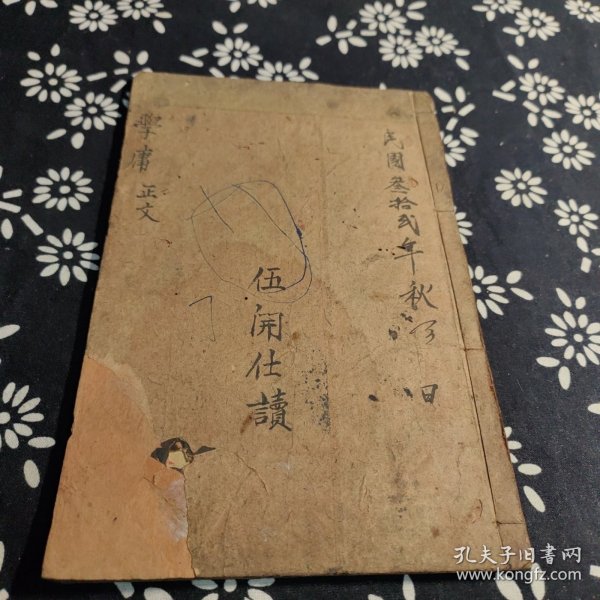 民國叁拾弍年秋 日
伍開仕讀
學庸正文
孔夫子旧书网
www.kongfz.com